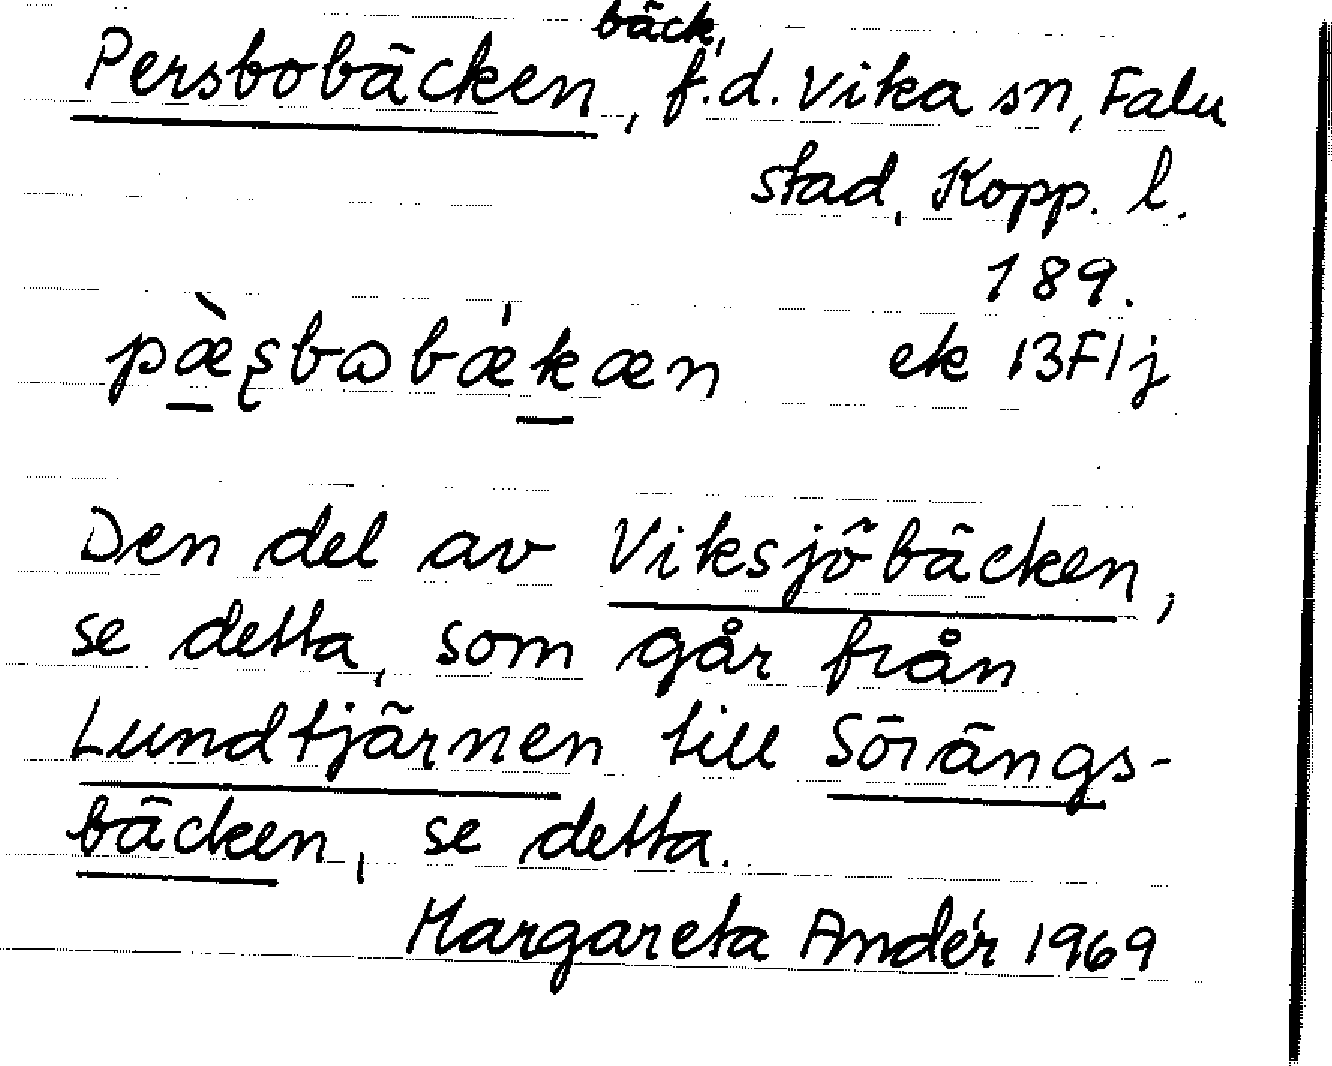 Persbobäcken, bäck, f.d. Vika sn, Falu
stad, Kopp. l.
189.
pæ̀ʂbɷbæ´kæn ek 13F1j
Den del av Viksjöbäcken,
se detta, som går från
Lundtjärnen till Sörängs-
bäcken, se detta.
Margareta Andér 1969